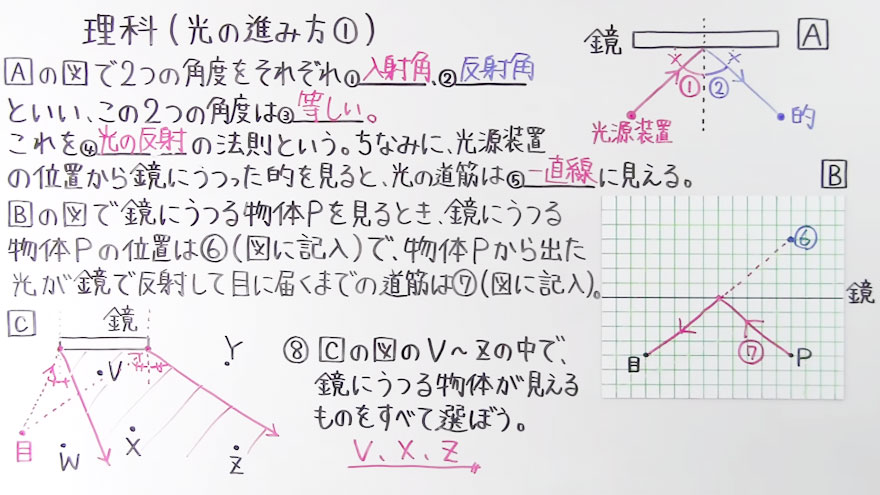 理科(光の進み方①)
Aの図で2つの角度をそれぞれ①入射角、②反射角
といい、この2つの角度は③等しい。
これを④光の反射の法則という。ちなみに、光源装置
の位置から鏡にうつった的を見ると、光の道筋は⑤一直線に見える。
Bの図で鏡にうつる物体Pを見るとき、鏡にうつる
物体Pの位置は⑥(図に記入)で、物体Pから出た
光が鏡で反射して目に届くまでの道筋は⑦(図に記入)。
鏡
A
×
×
①
②
光源装置
的
B
⑥
鏡
目
⑦
P
C
鏡
V
Y
目
W
X
Z
⑧ Cの図のV~Zの中で、
鏡にうつる物体が見える
ものをすべて選ぼう。
V、X、Z